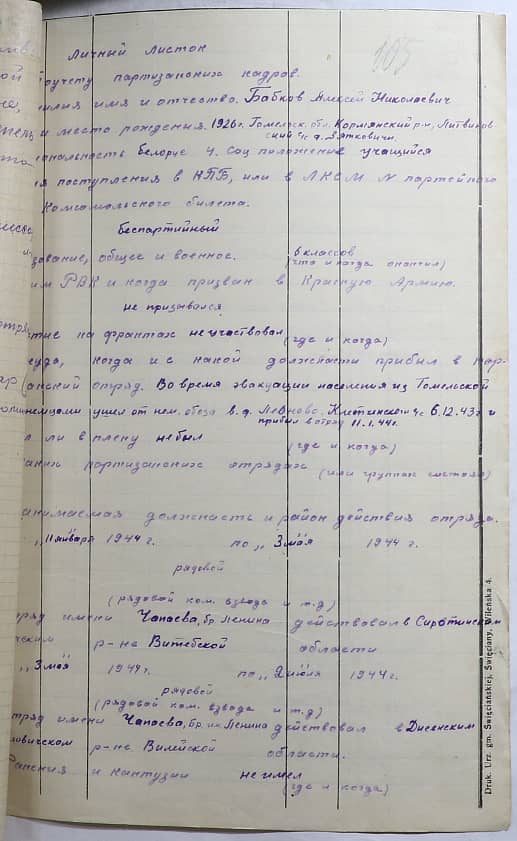 105
Личный листок
поучету партизанских кадров.
илия имя и отчество. Бабков Алексей Николаевич
и место рождения. 1926 г. Гомельск. обл. Кормянский р-н, Литвинов
ский с/с д. Зятковичи
иональность белорус 4. Соц положение учащийся
я поступления в КПБ, или в ЛКСМ N партейного
Комсомольского билета.
беспартийный
зование, общее и военное. 6 классов
(что и когда окончил)
им РВК и когда призван в Красную Армию.
не призывался
тие на фронтах не участвовал (где и когда)
суда, когда и с какой должности прибыл в пар-
анский отряд. Во время эвакуации населения из Гомельской
немцами ушел от нем. обоза в. д. с/с 6.12.43 г и
прибыл в отряд 11.1.44 г.
л ли в плену не был (где и когда)
аких партизанских отрядах (или группах состоял)
анимаемая должность и район действия отряда.
„11 января 1944 г. по „3 мая 1944 г.
рядовой
(рядовой ком. взвода и т.д)
ряд имени Чапаева, бр Ленина действовал в Сиротинском
ическом р-не Витебской области
„3 мая 1944 г. по „2 июля 1944 г.
рядовой
(рядовой ком. взвода и т.д)
тряд имени Чапаева, бр. им. Ленина действовал в Дисенским
р-не Вилейской области.
Ранения и контузии не имел
(где и когда)
Druk. Urz. gm. Święciańskiej, Święciany, Wileńska 4.